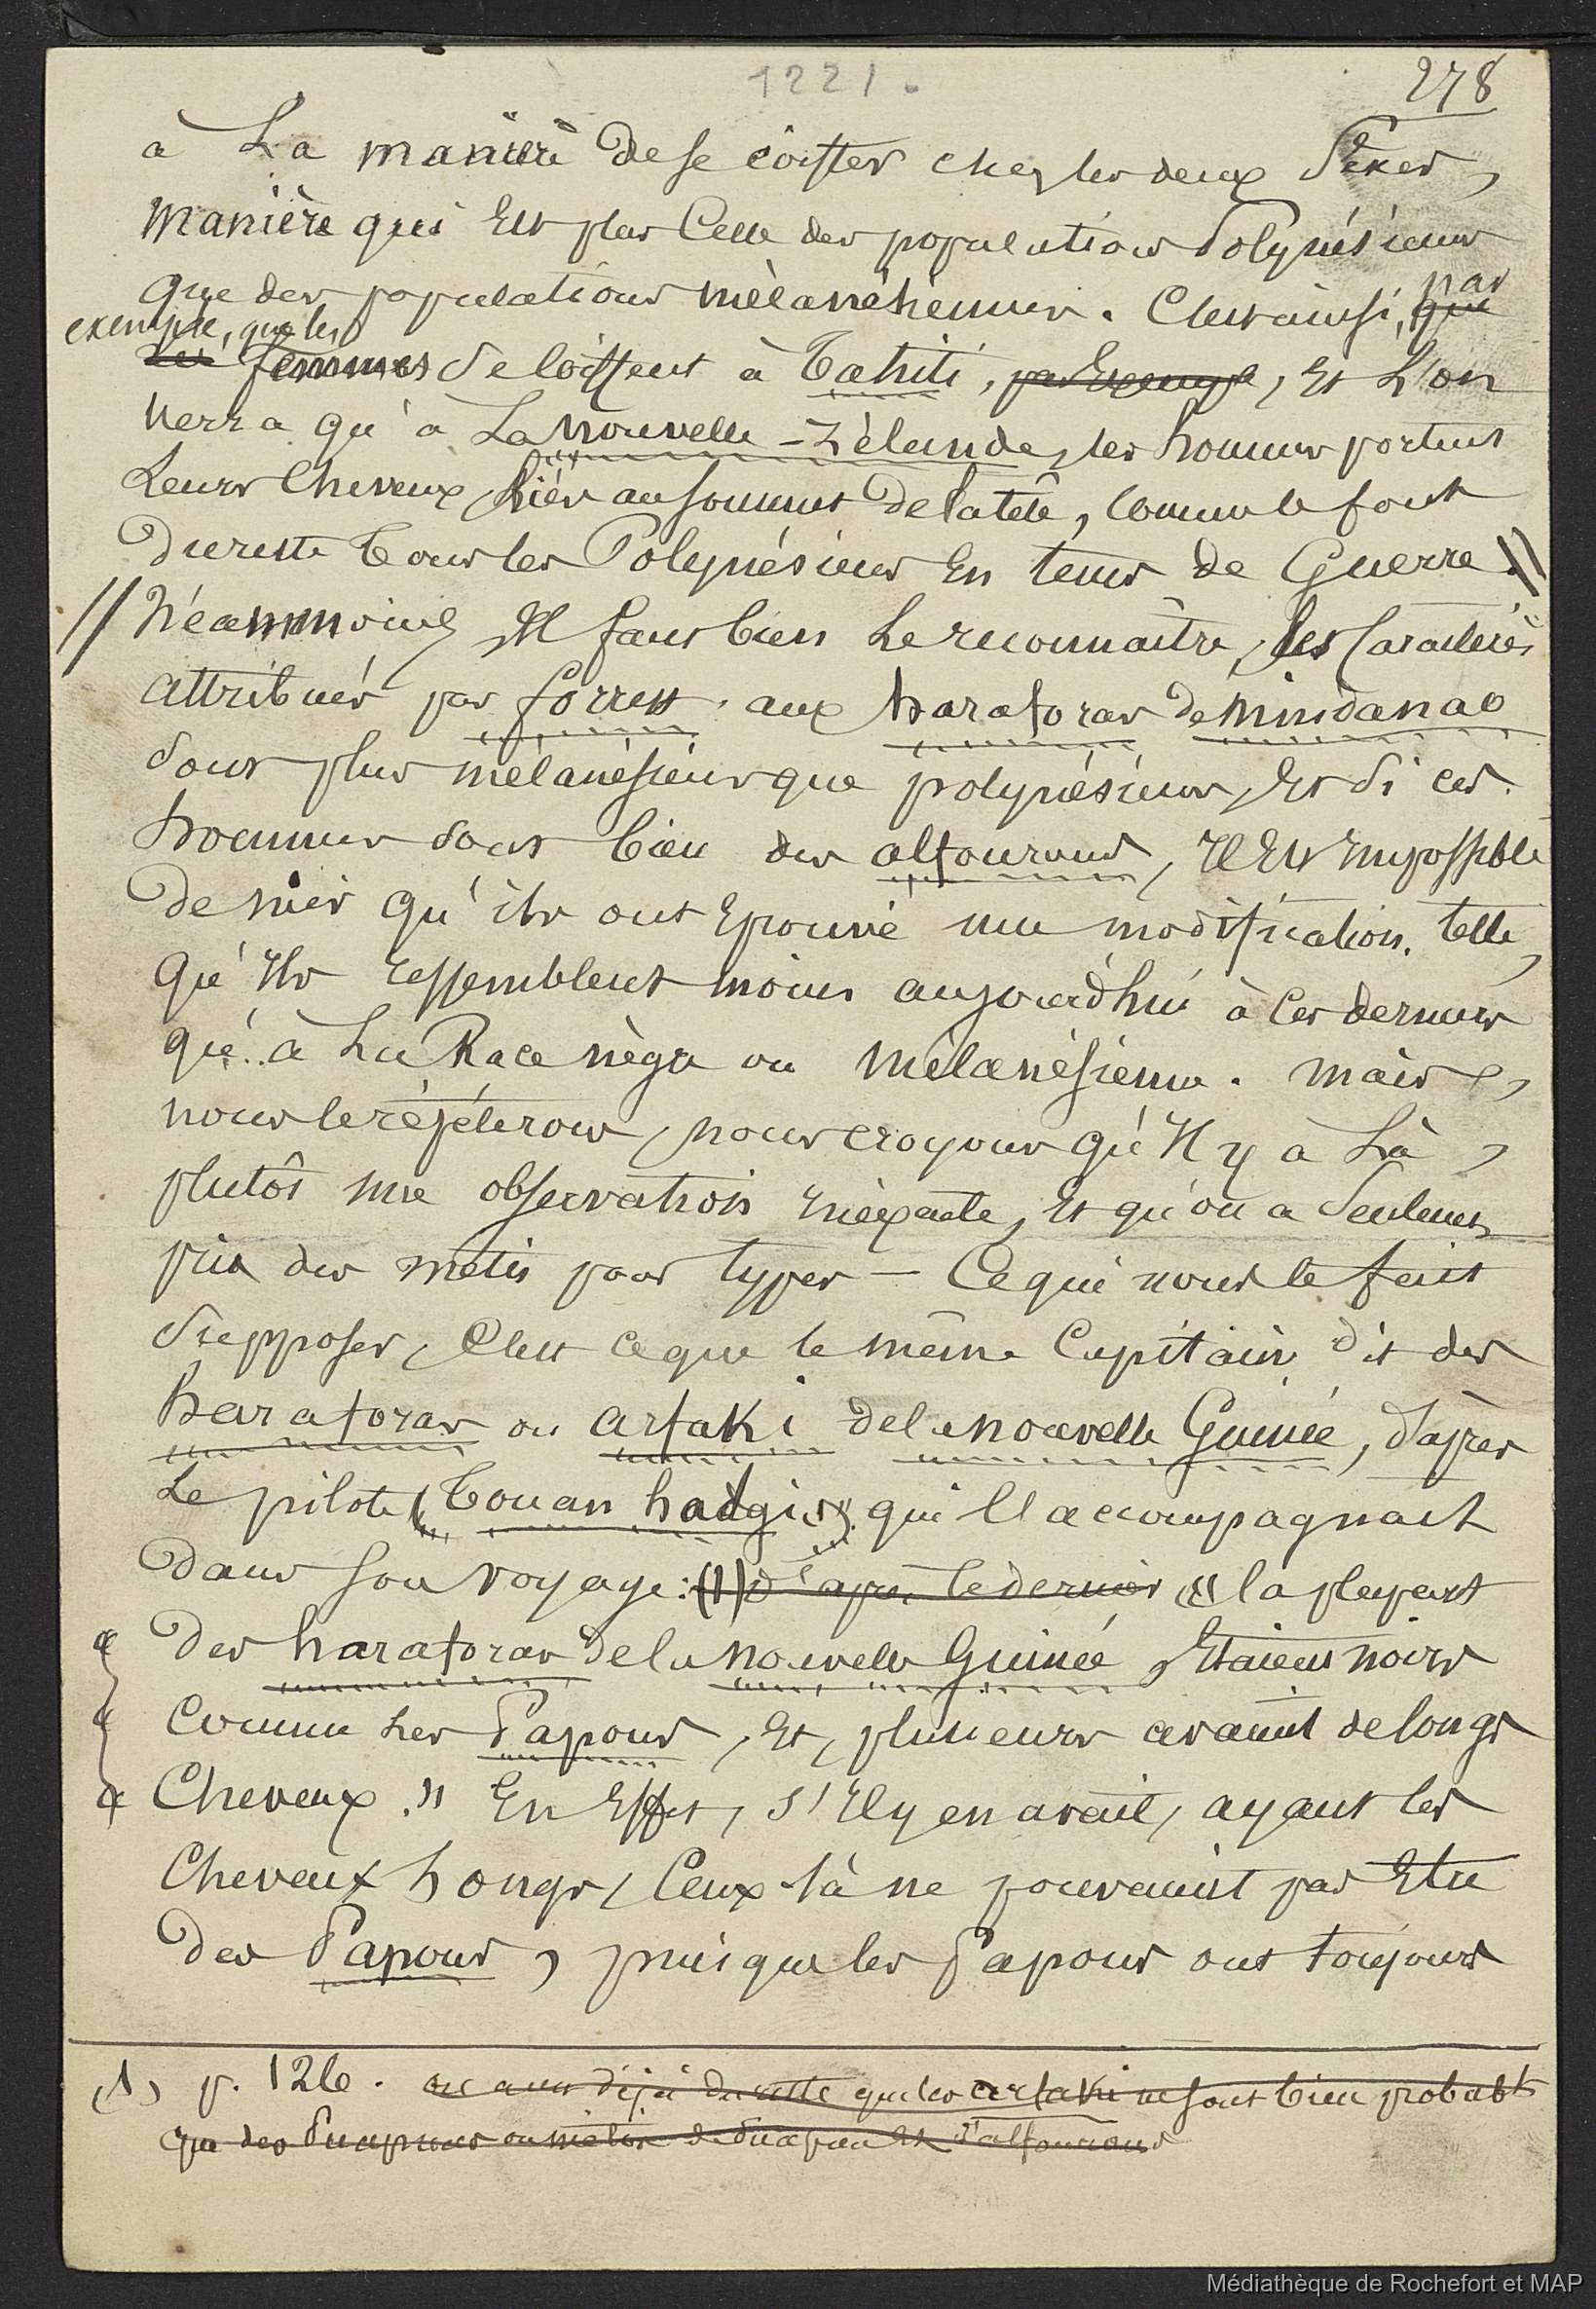 1221.
278
à La manière de se coiffer chez les deux Sexes,
manière qui Est plus Celle des populations Polynésiennes
que des populations mélanésiennes. C'est ainsi, que par
exemple, que les
les femmes se coiffent à Tahiti, par Exemple, Et L'on
verra qu'à La Nouvelle-Zélande, les hommes portent
Leurs Cheveux liés au sommet de la tête, comme le font
du reste tous les Polynésiens En tems de Guerre. //
// Néanmoins, Il faut bien Le reconnaître, les Caractères
attribués par forrest aux haraforas de Mindanao
Sont plus mélanésiens que polynésiens, Et Si ces
hommes sont bien des alfourous, Il Est Impossible
De nier qu'ils ont Eprouvé une modification telle,
qu'Ils ressemblent moins aujourd'hui à Ces derniers
qu'à La Race nègre ou Mélanésienne. Mais,
nous le répéterons, nous croyons qu'Il y a Là,
plutôt une observation Inéxacte, Et qu'on a Seulement
pris des métis pour types — Ce qui nous le fait
Supposer, C'est ce que le même Capitaine dit des
haraforas ou arfaki de la nouvelle Guinée, d'après
Le pilote (Touan hadgi) qui l'accompagnait
Dans son voyage: (1) d'après ce dernier « la plupart
Des haraforas de la nouvelle Guinée, Etaient noirs
Comme les Papous, Et, plusieurs avaient de longs
Cheveux. » En Effet, S'Il y en avait, ayant les
Cheveux Longs, Ceux là ne pouvaient pas Etre
Des Papous, puisque les Papous ont toujours
(1) p. 126. on a vu déjà du reste que les arfaki ne sont bien probabt
que des Papous ou métis de Papou Et d'alfourous
Médiathèque de Rochefort et MAP